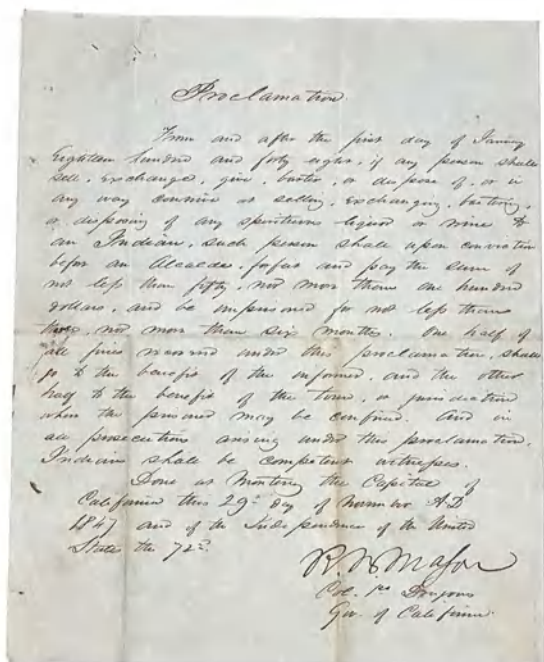 Proclamation.
From and after the first day of Janry
Eighteen hundred and forty eight, if any person shall
sell, exchange, give, barter, or dispose of, or in
any way connive at selling, exchanging, bartering,
or disposing of any spirituous liquor or wine to
an Indian, such person shall upon conviction
before an Alcalde, forfeit and pay the sum of
not less than fifty, nor more than one hundred
dollars, and be imprisoned for not less than
three, nor more than six months. One half of
all fines recovered under this proclamation, shall
go to the benefit of the informer, and the other
half to the benefit of the town, or jurisdiction
where the prisoner may be confined. And in
all prosecutions arising under this proclamation,
Indians shall be competent witnesses.
Done at Monterey the Capital of
California this 29th day of November A.D.
1847 and of the Independence of the United
States the 72nd.
R. B. Mason
Col. 1st Dragoons
Gov. of California